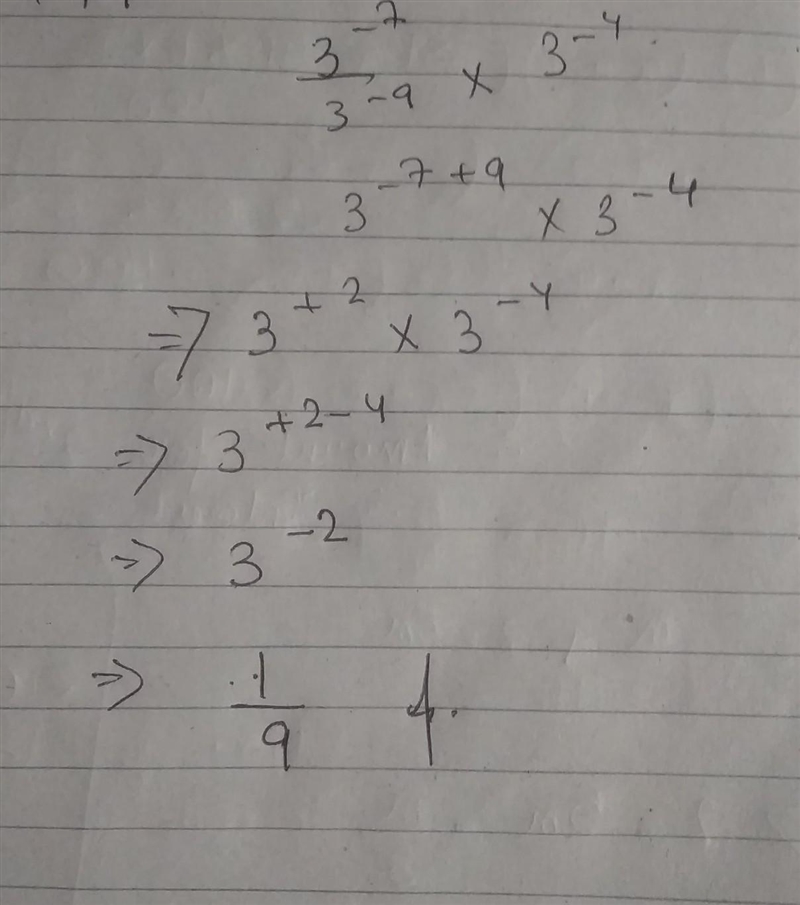 3^-7 / 3^-9 × 3^-4
3^-7+9 × 3^-4
⇒ 3^+2 × 3^-4
⇒ 3^+2-4
⇒ 3^-2
⇒ 1/9